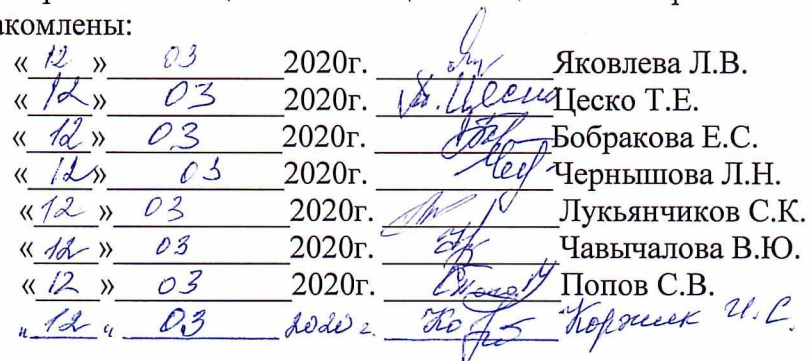 акомлены:
« 12 » 03 2020г. Яковлева Л.В.
« 12 » 03 2020г. Цеско Т.Е.
« 12 » 03 2020г. Бобракова Е.С.
« 12 » 03 2020г. Чернышова Л.Н.
« 12 » 03 2020г. Лукьянчиков С.К.
« 12 » 03 2020г. Чавычалова В.Ю.
« 12 » 03 2020г. Попов С.В.
" 12 " 03 2020 г. И.С.